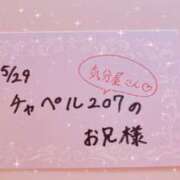 5/29
気分屋さん♡
チャペル207の
お兄様